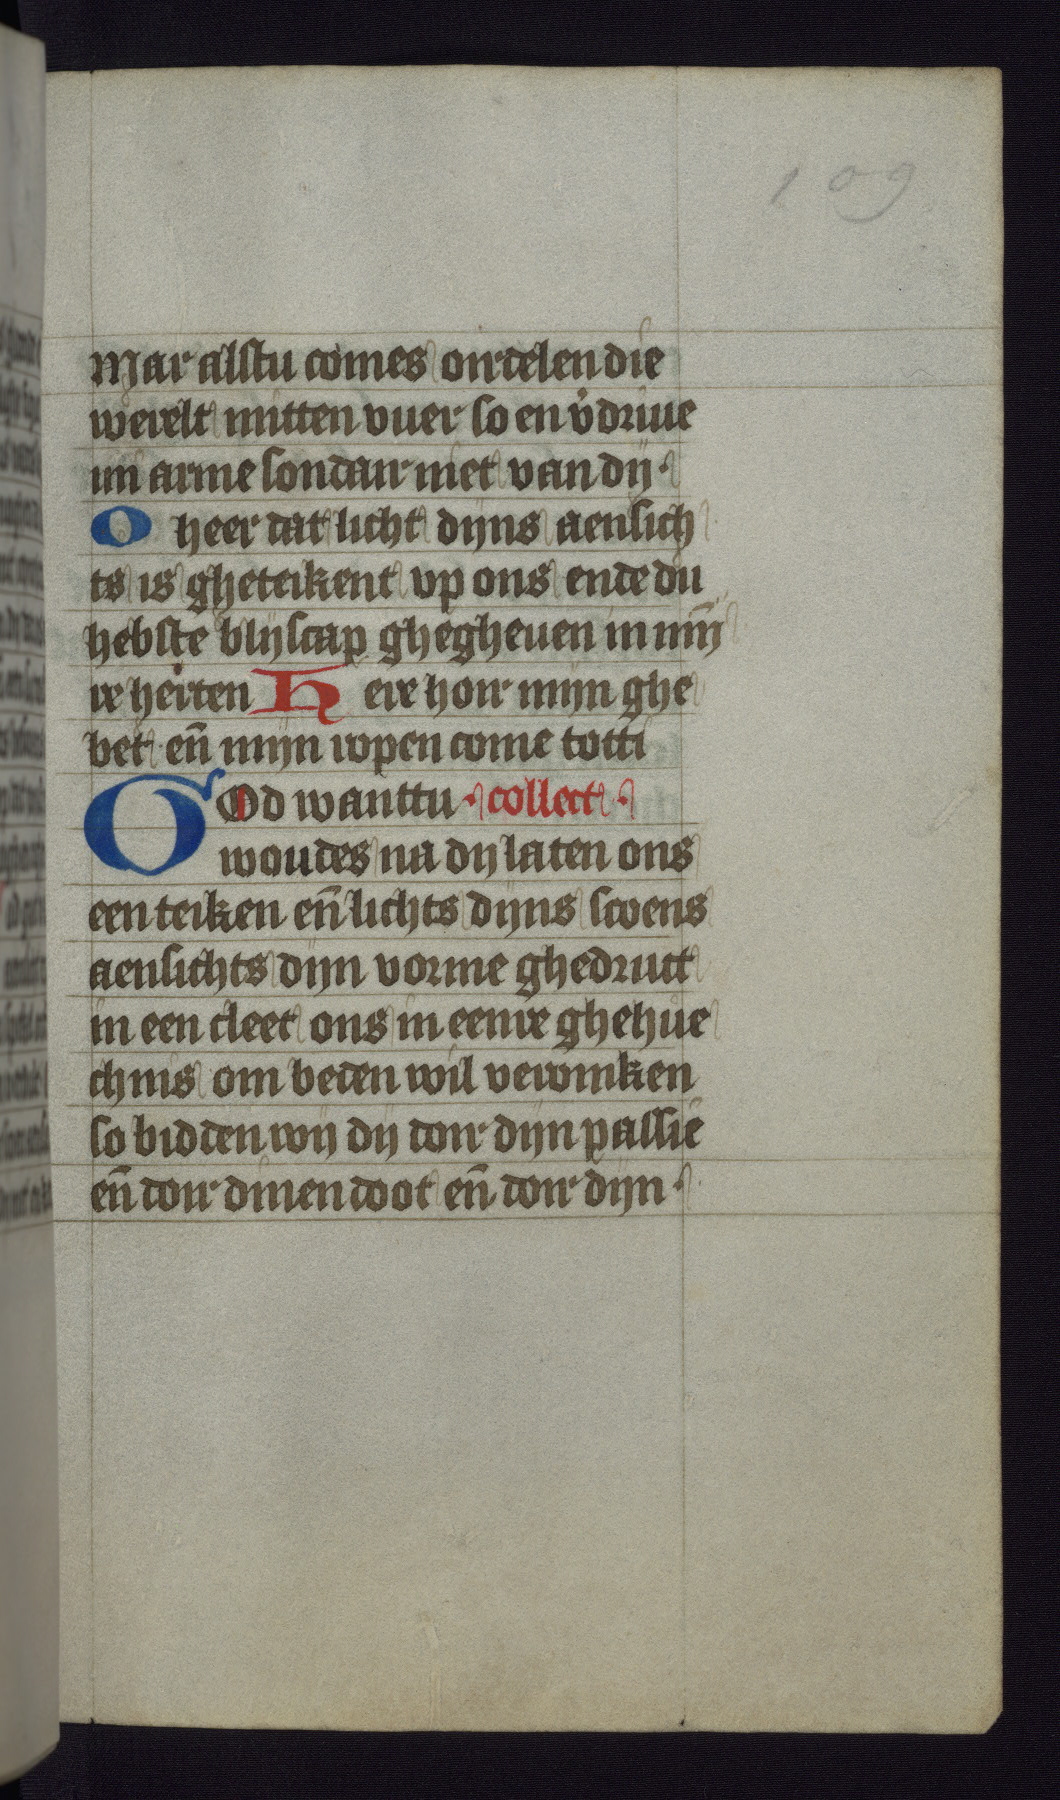 109
Mar alstu comes ordelen die
werelt mitten vuer so en v̓driue
mi arme sondair niet van dij
O heer dat licht dijns aensich
ts is gheteikent vp ons ende du
hebste blijscap ghegheuen in mij̄
re herten Here hoir mijn ghe
bet en̄ mijn ropen come totti
God wanttu collect
woudes na dij laten ons
een teiken en̄ lichts dijns scoens
aensichts dijn vorme ghedruct
in een cleet ons in eenre ghehue
chnis om beden wil veroniken
so bidden wij dij doir dijn passie
en̄ doir dinen doot en̄ doir dijn